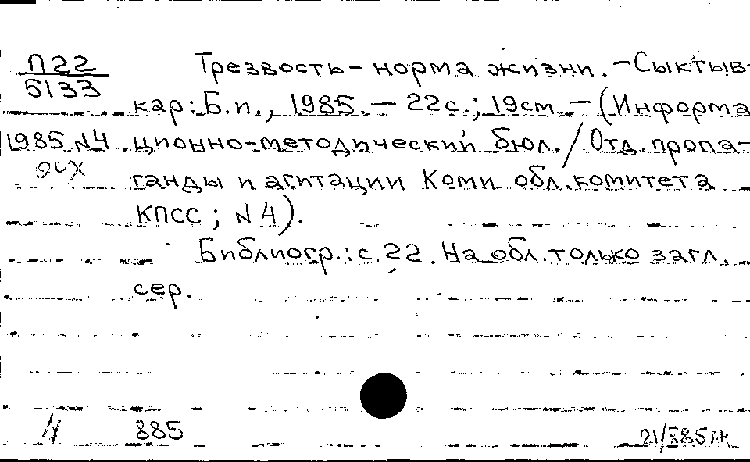 П22 Трезвость - норма жизни. - Сыктыв-
5133 кар: Б.и., 1985. - 22с.; 19см. - (Информа
1985 N4 ционно-методический бюл. / Отд. пропа-
ганды и агитации Коми обл. комитета
КПСС ; N 4).
Библиогр.: с. 22. На обл. только загл.
сер.
885